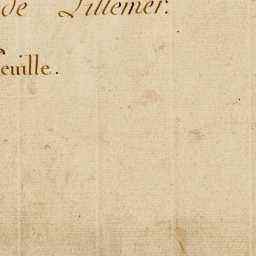 de Lillemer.
euille.